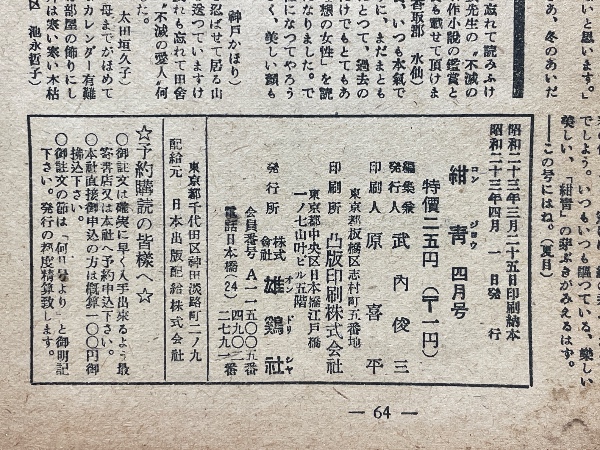 いと思います。」
あゝ、冬のあいだ
忘れて読みふけ
先生の〝不滅の
作小説の鑑賞と
も載せて頂けま
、いつも本氣で
香取郡 水仙)
に、まだまとも
とつて、過去の
けでもとてもあ
想の女性」を読
なりました。で
になつてやろう
く、美しい顔も
神戸かほり)
忍ばせて居る山
送つていますけ
れも忘れて田舎
〝不滅の愛人〟何
た。
太田垣久子)
母までがほめて
カレンダー有難
部屋の飾りにし
は寒い寒い木枯
区 池永哲子)
でしよう。いつもいつも脳つている、樂しい
美しい、「紺靑」の芽ぶきがみえるはず。
——この号にはね。(夏目)
昭和二十三年三月二十五日印刷納本
昭和二十三年四月一日発行
紺靑 四月号
コンジヨウ
特價二五円(〒一円)
編集兼発行人 武内俊三
印刷人 原喜平
東京都板橋区志村町五番地
印刷所 凸版印刷株式会社
東京都中央区日本橋江戸橋
一ノ七山叶ビル五階
発行所 株式會社 雄鷄社
オンドリシヤ
会員番号 A一一五〇〇五番
電話日本橋(24) 四九〇二番
二七九一番
東京都千代田区神田淡路町二ノ九
配給元 日本出版配給株式会社
☆予約購読の皆様へ☆
○御註文は確実に早く入手出來るよう最
寄書店又は本社へ予約申込下さい。
○本社直接御申込の方は概算一〇〇円御
拂込下さい。
○御註文の節は「何月号より」と御明記
下さい。発行の都度精算致します。
— 64 —